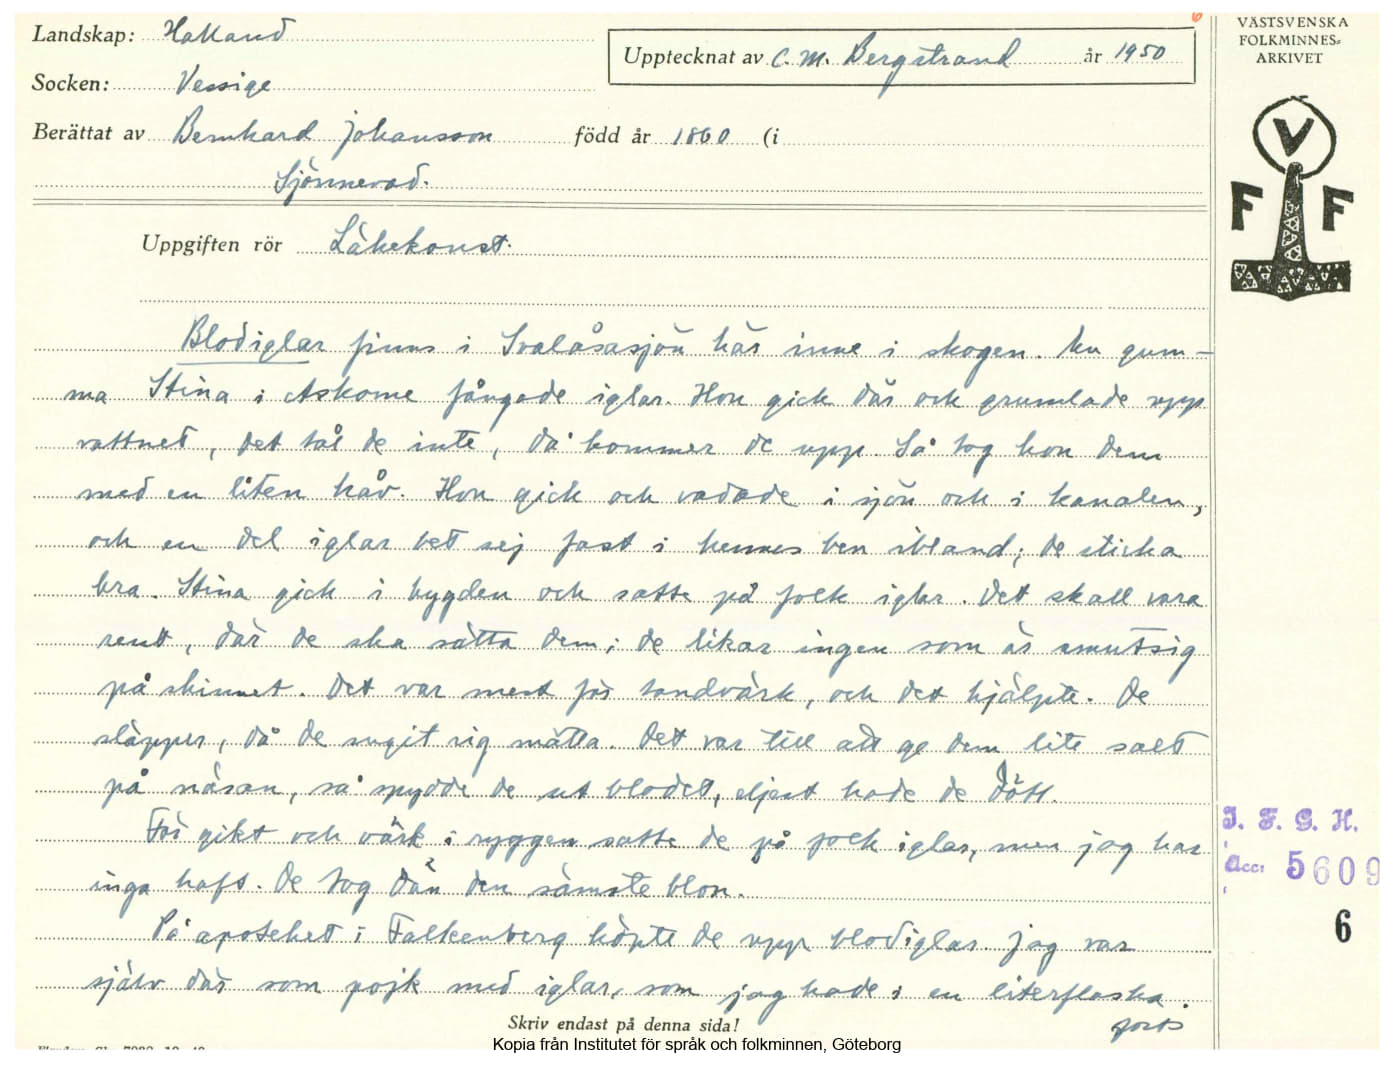 Landskap: Halland
Upptecknat av C. M. Bergstrand år 1950
VÄSTSVENSKA
FOLKMINNES-
ARKIVET
Socken: Vessige
Berättat av Bernhard Johansson född år 1860 (i
Sjönnevad.
V
F F
Uppgiften rör Läkekonst.
Blodiglar finns i Svalåsasjön här inne i skogen. En gum-
ma Stina i Askome fångade iglar. Hon gick där och grumlade upp
vattnet, det tål de inte, då kommer de upp. Så tog hon dem
med en liten håv. Hon gick och vadade i sjön och i kanalen,
och en del iglar bet sej fast i hennes ben ibland; de sticka
bra. Stina gick i bygden och satte på folk iglar. Det skall vara
rent, där de ska sätta dem; de likar ingen som är smutsig
på skinnet. Det var mest för tandvärk, och det hjälpte. De
släpper, då de sugit sig mätta. Det var till att ge dem lite salt
på näsan, så spydde de ut blodet, eljest hade de dött.
För gikt och värk i ryggen satte de på folk iglar, men jag har
inga haft. De tog där den sämste blon.
På apoteket i Falkenberg köpte de upp blodiglar. Jag var
själv där som pojk med iglar, som jag hade i en literflaska.
forts
I. F. G. H.
Acc: 5609
6
Skriv endast på denna sida!
Kopia från Institutet för språk och folkminnen, Göteborg